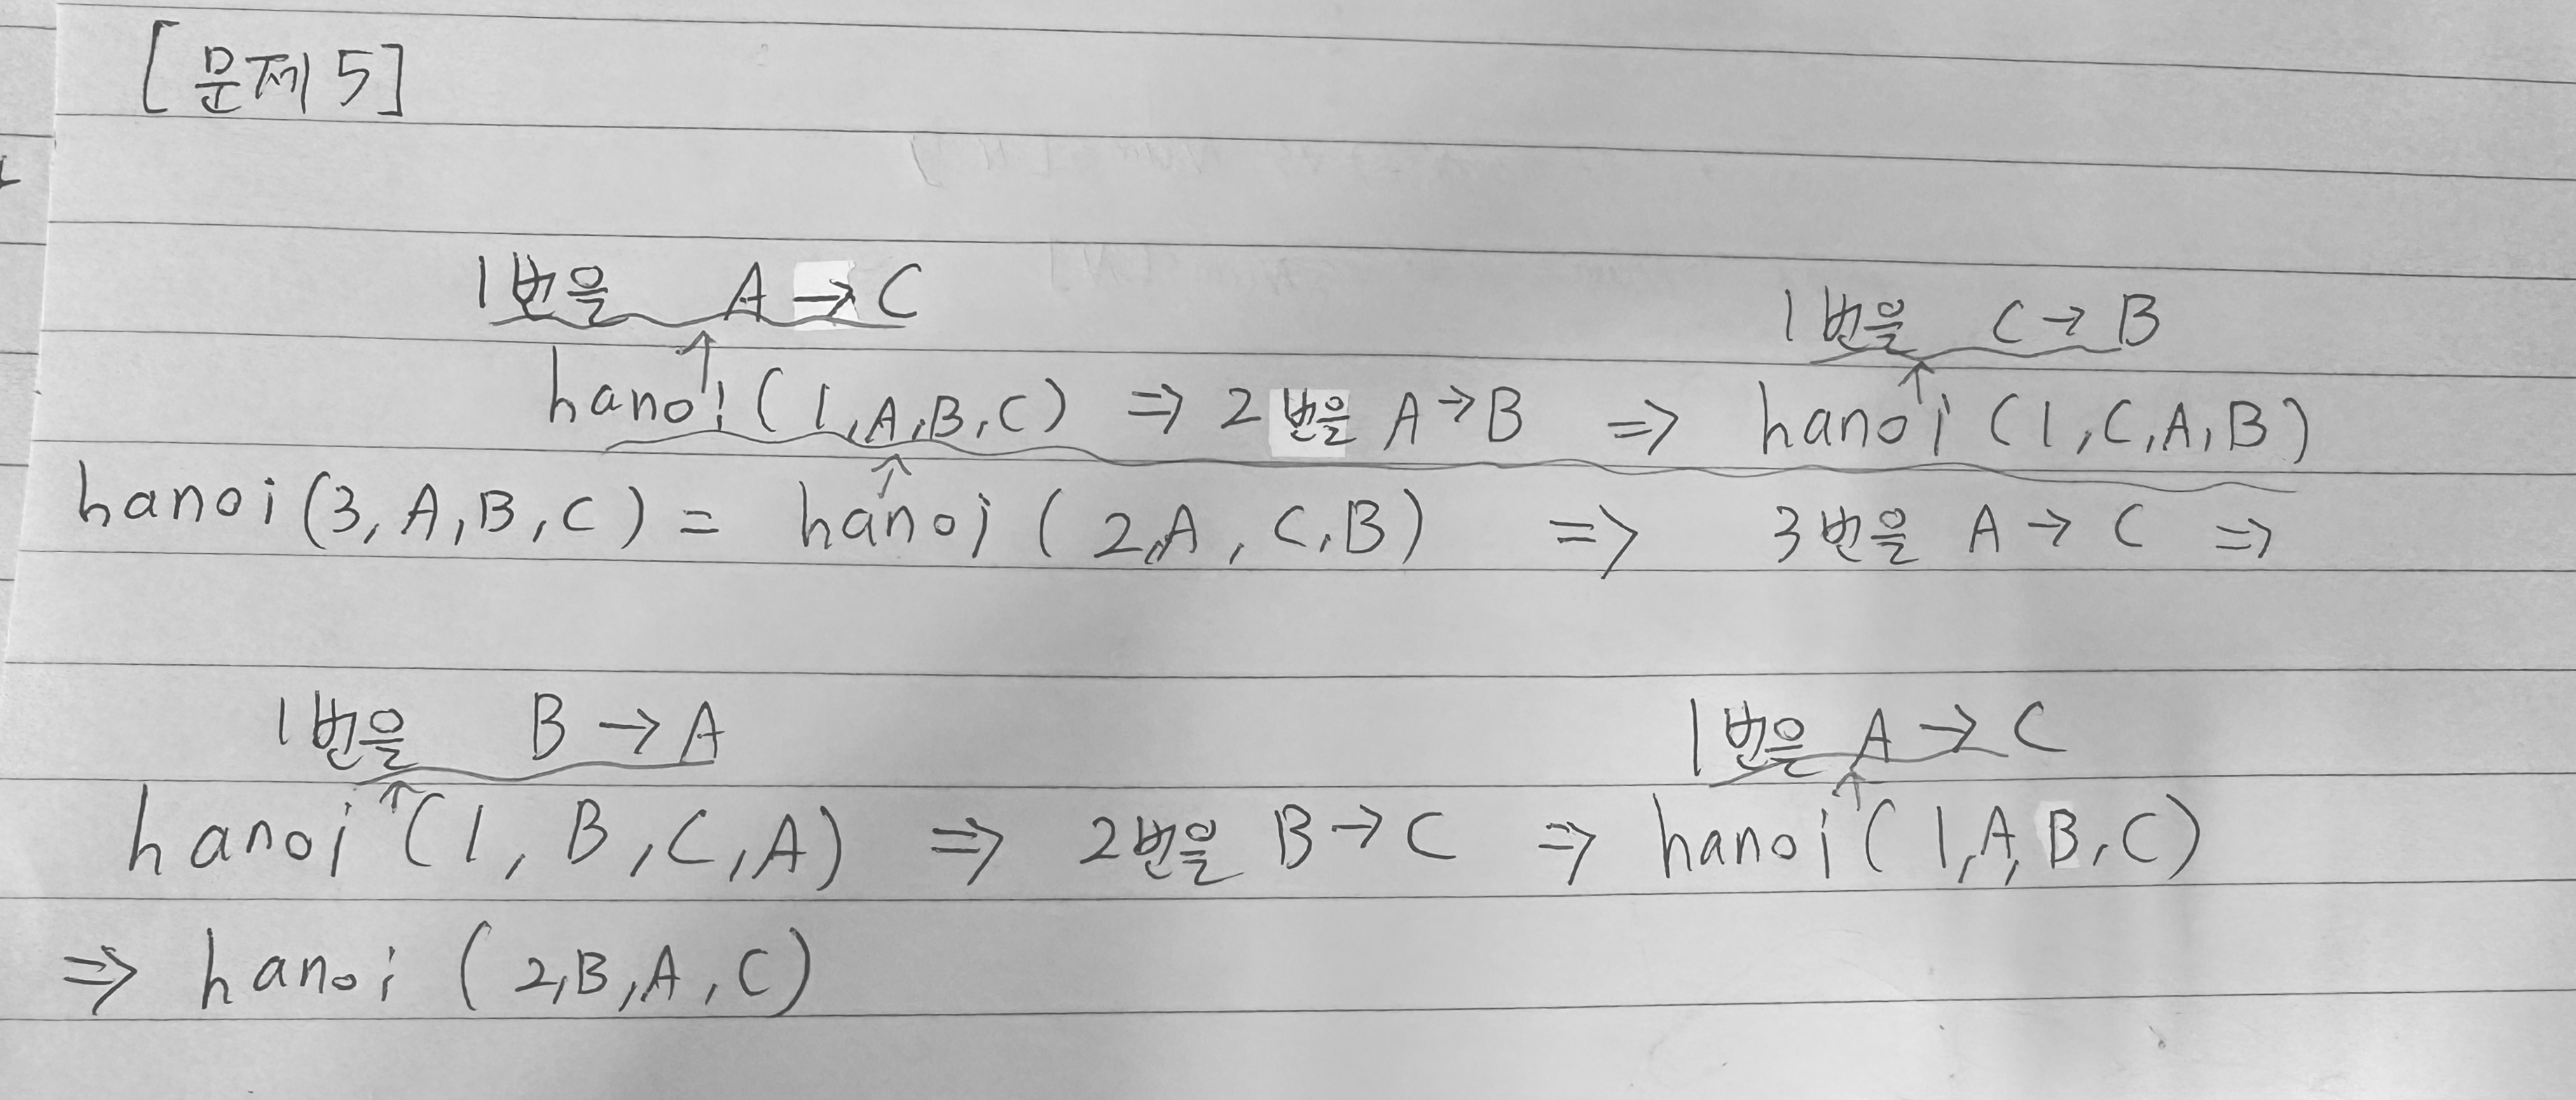 [문제 5]
1번을 A → C 1번을 C → B
hanoi (1,A,B,C) ⇒ 2번을 A → B ⇒ hanoi (1,C,A,B)
hanoi (3,A,B,C) = hanoi (2,A,C,B) ⇒ 3번을 A → C ⇒
1번을 B → A 1번을 A → C
hanoi (1,B,C,A) ⇒ 2번을 B → C ⇒ hanoi (1,A,B,C)
⇒ hanoi (2,B,A,C)